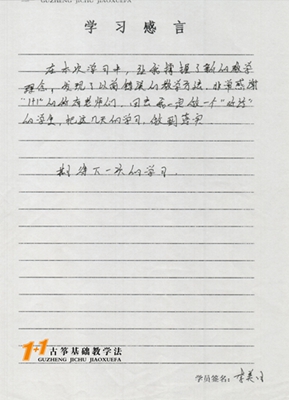 GUZHENG JICHU JIAOXUEFA
学习感言
在本次学习中，我掌握了新的教学
理念，发现了以前错误的教学方法，非常感谢
"1+1"的所有老师们，回去我一定做一个"好好"
的学生，把这几天的学习，做到落实
期待下一次的学习．
1+1 古筝基础教学法
GUZHENG JICHU JIAOXUEFA
学员签名：李美